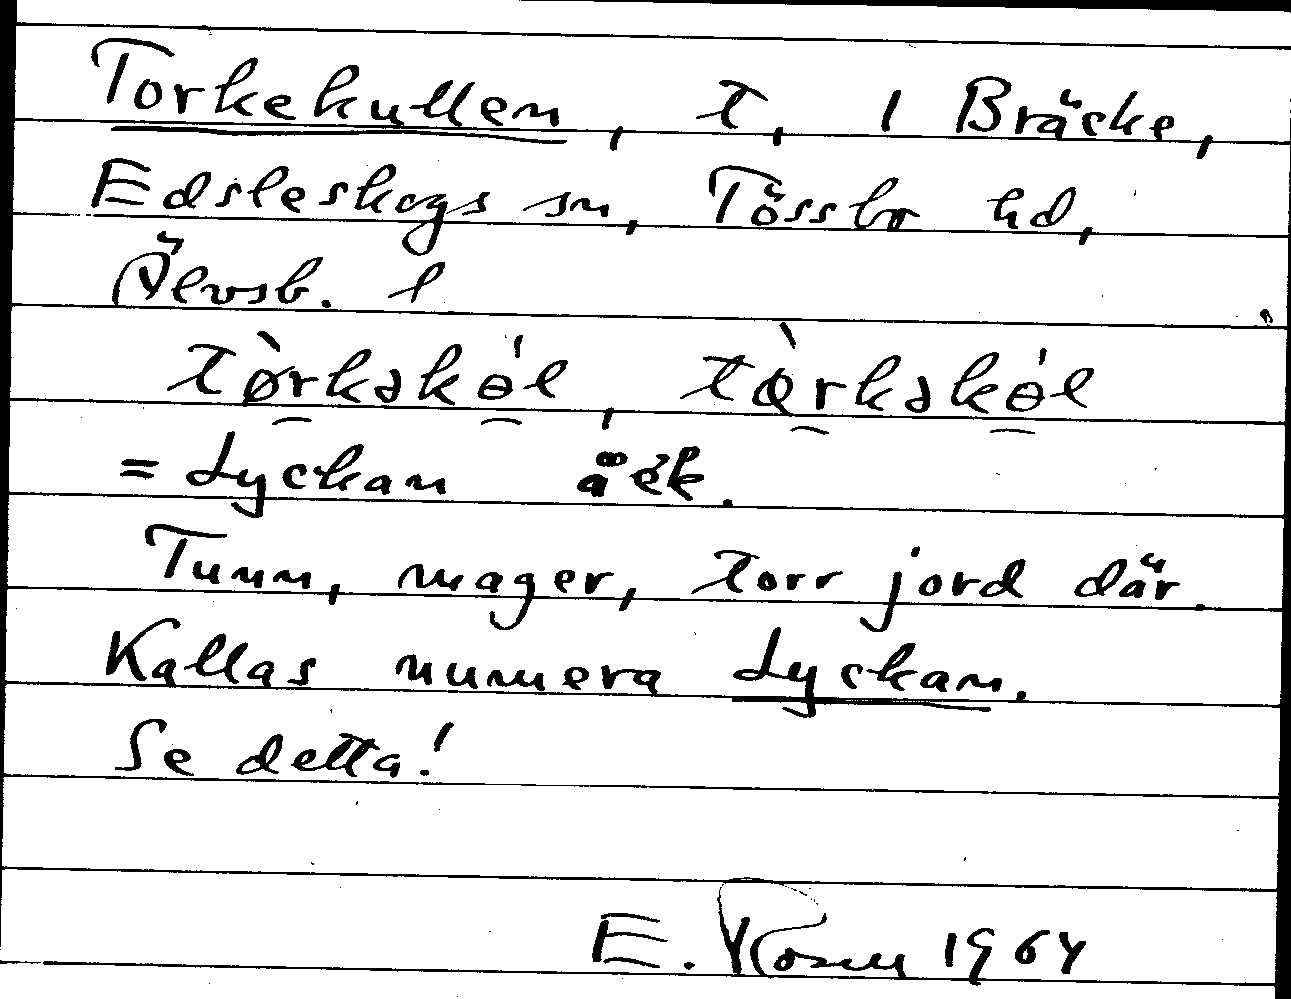 Torkekullen, t, 1 Bräcke,
Edsleskogs sn, Tössbo hd,
Älvsb. l
tørkəkɵl, tɑrkəkɵl
= Lyckan åëk.
Tunn, mager, torr jord där.
Kallas numera Lyckan.
Se detta!
E. Rosen 1964